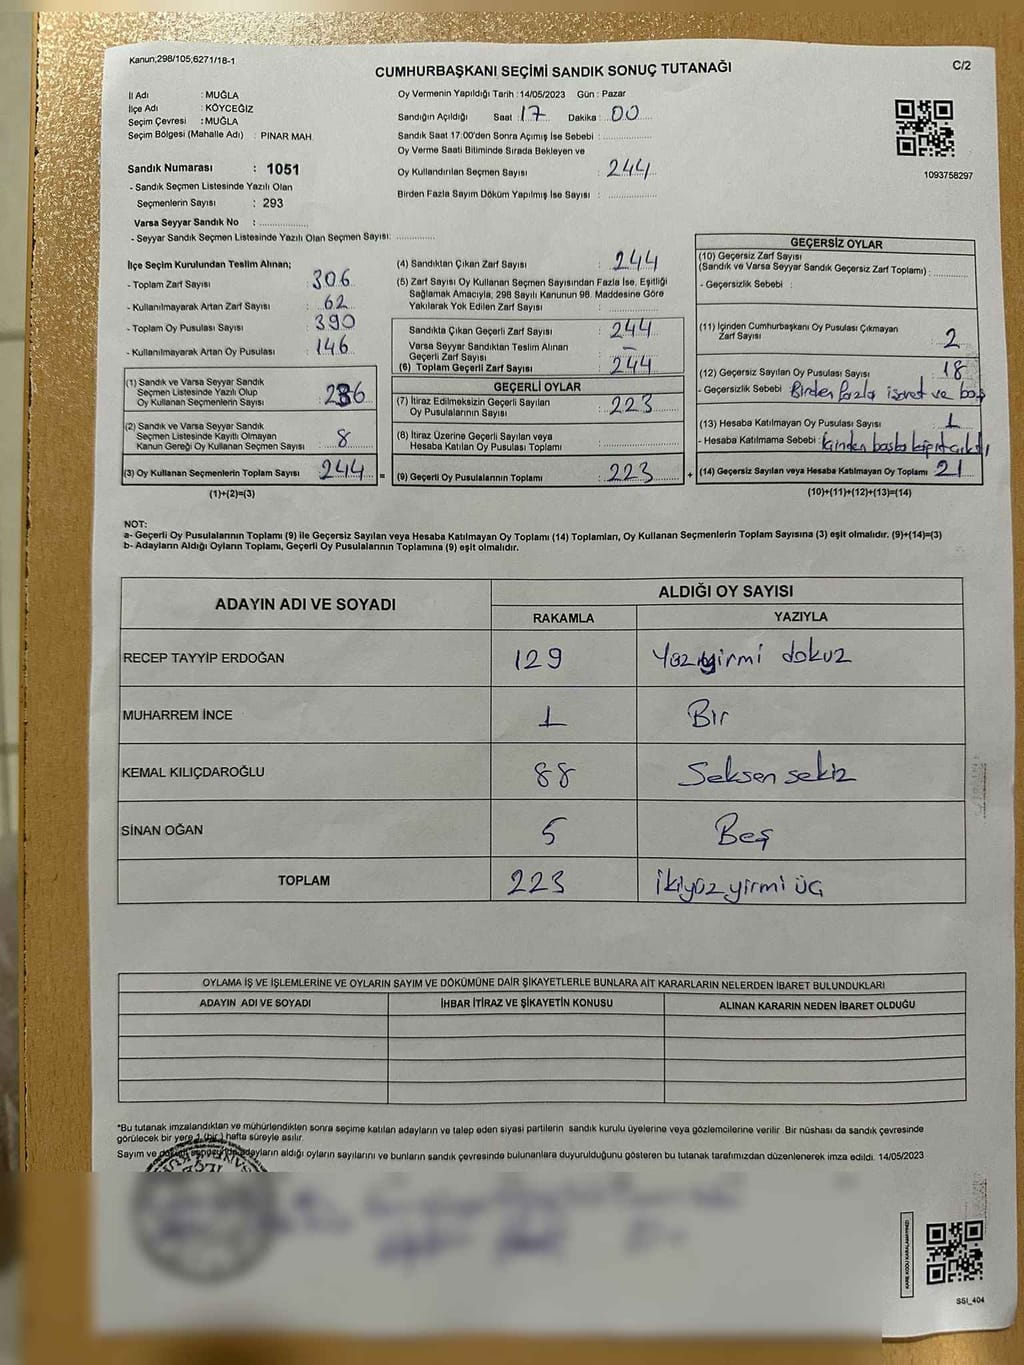 Kanun,298/105,6271/18-1
C/2
CUMHURBAŞKANI SEÇİMİ SANDIK SONUÇ TUTANAĞI
İl Adı : MUĞLA
İlçe Adı : KÖYCEĞİZ
Seçim Çevresi : MUĞLA
Seçim Bölgesi (Mahalle Adı) : PINAR MAH.
Sandık Numarası : 1051
- Sandık Seçmen Listesinde Yazılı Olan
Seçmenlerin Sayısı : 293
Varsa Seyyar Sandık No : ................
- Seyyar Sandık Seçmen Listesinde Yazılı Olan Seçmen Sayısı: .............
Oy Vermenin Yapıldığı Tarih : 14/05/2023 Gün : Pazar
Sandığın Açıldığı Saat : 17 Dakika : 00
Sandık Saat 17:00'den Sonra Açımış İse Sebebi : ................
Oy Verme Saati Bitiminde Sırada Bekleyen ve
Oy Kullandırılan Seçmen Sayısı : 244
Birden Fazla Sayım Döküm Yapılmış İse Sayısı : ................
1093758297
İlçe Seçim Kurulundan Teslim Alınan;
- Toplam Zarf Sayısı : 306
- Kullanılmayarak Artan Zarf Sayısı : 62
- Toplam Oy Pusulası Sayısı : 390
- Kullanılmayarak Artan Oy Pusulası : 146
(1) Sandık ve Varsa Seyyar Sandık
Seçmen Listesinde Yazılı Olup
Oy Kullanan Seçmenlerin Sayısı : 236
(2) Sandık ve Varsa Seyyar Sandık
Seçmen Listesinde Kayıtlı Olmayan
Kanun Gereği Oy Kullanan Seçmen Sayısı : 8
(3) Oy Kullanan Seçmenlerin Toplam Sayısı : 244
(1)+(2)=(3)
(4) Sandıktan Çıkan Zarf Sayısı : 244
(5) Zarf Sayısı Oy Kullanan Seçmen Sayısından Fazla İse, Eşitliği
Sağlamak Amacıyla, 298 Sayılı Kanunun 98. Maddesine Göre
Yakılarak Yok Edilen Zarf Sayısı : ................
Sandıkta Çıkan Geçerli Zarf Sayısı : 244
Varsa Seyyar Sandıktan Teslim Alınan
Geçerli Zarf Sayısı : –
(6) Toplam Geçerli Zarf Sayısı : 244
GEÇERLİ OYLAR
(7) İtiraz Edilmeksizin Geçerli Sayılan
Oy Pusulalarının Sayısı : 223
(8) İtiraz Üzerine Geçerli Sayılan veya
Hesaba Katılan Oy Pusulası Toplamı : ................
= (9) Geçerli Oy Pusulalarının Toplamı : 223 +
GEÇERSİZ OYLAR
(10) Geçersiz Zarf Sayısı
(Sandık ve Varsa Seyyar Sandık Geçersiz Zarf Toplamı) : ............
- Geçersizlik Sebebi :
(11) İçinden Cumhurbaşkanı Oy Pusulası Çıkmayan
Zarf Sayısı : 2
(12) Geçersiz Sayılan Oy Pusulası Sayısı : 18
- Geçersizlik Sebebi : Birden fazla işaret ve boş
(13) Hesaba Katılmayan Oy Pusulası Sayısı : 1
- Hesaba Katılmama Sebebi : İçinden başka kağıt çıktı
(14) Geçersiz Sayılan veya Hesaba Katılmayan Oy Toplamı : 21
(10)+(11)+(12)+(13)=(14)
NOT:
a- Geçerli Oy Pusulalarının Toplamı (9) ile Geçersiz Sayılan veya Hesaba Katılmayan Oy Toplamı (14) Toplamları, Oy Kullanan Seçmenlerin Toplam Sayısına (3) eşit olmalıdır. (9)+(14)=(3)
b- Adayların Aldığı Oyların Toplamı, Geçerli Oy Pusulalarının Toplamına (9) eşit olmalıdır.
ADAYIN ADI VE SOYADI
ALDIĞI OY SAYISI
RAKAMLA YAZIYLA
RECEP TAYYİP ERDOĞAN 129 Yüz yirmi dokuz
MUHARREM İNCE 1 Bir
KEMAL KILIÇDAROĞLU 88 Seksen sekiz
SİNAN OĞAN 5 Beş
TOPLAM 223 İkiyüz yirmi üç
OYLAMA İŞ VE İŞLEMLERİNE VE OYLARIN SAYIM VE DÖKÜMÜNE DAİR ŞİKAYETLERLE BUNLARA AİT KARARLARIN NELERDEN İBARET BULUNDUKLARI
ADAYIN ADI VE SOYADI İHBAR İTİRAZ VE ŞİKAYETİN KONUSU ALINAN KARARIN NEDEN İBARET OLDUĞU
*Bu tutanak imzalandıktan ve mühürlendikten sonra seçime katılan adayların ve talep eden siyasi partilerin sandık kurulu üyelerine veya gözlemcilerine verilir. Bir nüshası da sandık çevresinde
görülecek bir yere 1 (bir) hafta süreyle asılır.
Sayım ve döküm sonucunda adayların aldığı oyların sayılarını ve bunların sandık çevresinde bulunanlara duyurulduğunu gösteren bu tutanak tarafımızdan düzenlenerek imza edildi. 14/05/2023
KARE KODU KARALAMAYINIZ!
SSI_404